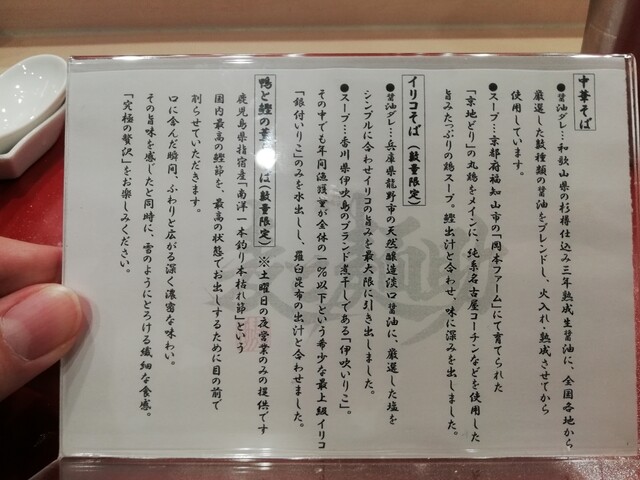 中華そば
●醤油ダレ…和歌山県の杉樽仕込み三年熟成生醤油に、全国各地から
厳選した数種類の醤油をブレンドし、火入れ・熟成させてから
使用しています。
●スープ…京都府福知山市の「岡本ファーム」にて育てられた
「京地どり」の丸鶏をメインに、純系名古屋コーチンなどを使用した
旨みたっぷりの鶏スープ。鰹出汁と合わせ、味に深みを出しました。
イリコそば(数量限定)
●醤油ダレ…兵庫県龍野市の天然醸造淡口醤油に、厳選した塩を
シンプルに合わせイリコの旨みを最大限に引き出しました。
●スープ…香川県伊吹島のブランド煮干しである「伊吹いりこ」。
その中でも年間漁獲量が全体の一%以下という希少な最上級イリコ
「銀付いりこ」のみを水出しし、羅臼昆布の出汁と合わせました。
鴨と鰹の そば(数量限定) ※土曜日の夜営業のみの提供です
鹿児島県指宿産「南洋一本釣り本枯れ節」という
国内最高の鰹節を、最高の状態でお出しするために目の前で
削らせていただきます。
口に含んだ瞬間、ふわりと広がる深く濃密な味わい。
その旨味を感じたと同時に、雪のようにとろける繊細な食感。
「究極の贅沢」をお楽しみください。